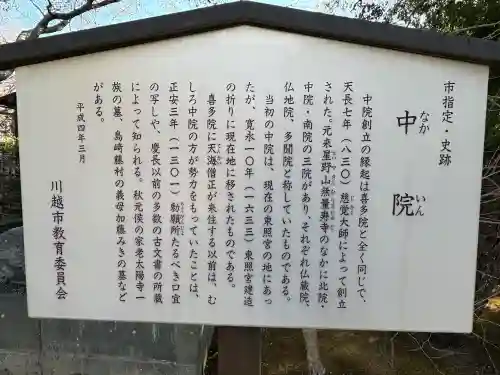 市指定・史跡
中院
なか いん
中院創立の縁起は喜多院と全く同じで、
天長七年（八三〇）慈覚大師によって創立
された。元来星野山無量寿寺のなかに北院・
中院・南院の三院があり、それぞれ仏蔵院、
仏地院、多聞院と称していたものである。
当初の中院は、現在の東照宮の地にあっ
たが、寛永一〇年（一六三三）東照宮建造
の折りに現在地に移されたものである。
喜多院に天海僧正が来住する以前は、む
しろ中院の方が勢力をもっていたことは、
正安三年（一三〇一）勅願所たるべき口宜
の写しや、慶長以前の多数の古文書の所蔵
によって知られる。秋元侯の家老太陽寺一
族の墓、島崎藤村の義母加藤みきの墓など
がある。
平成四年三月
川越市教育委員会